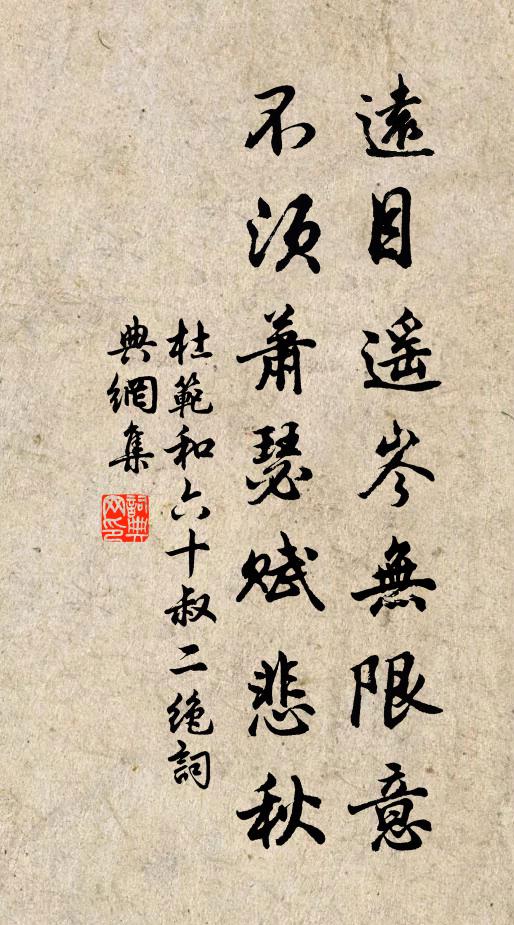 遠目遥岑無限意
不須蕭瑟賦悲秋
杜範和六十叔二絶詞
典網集
詞典
网印